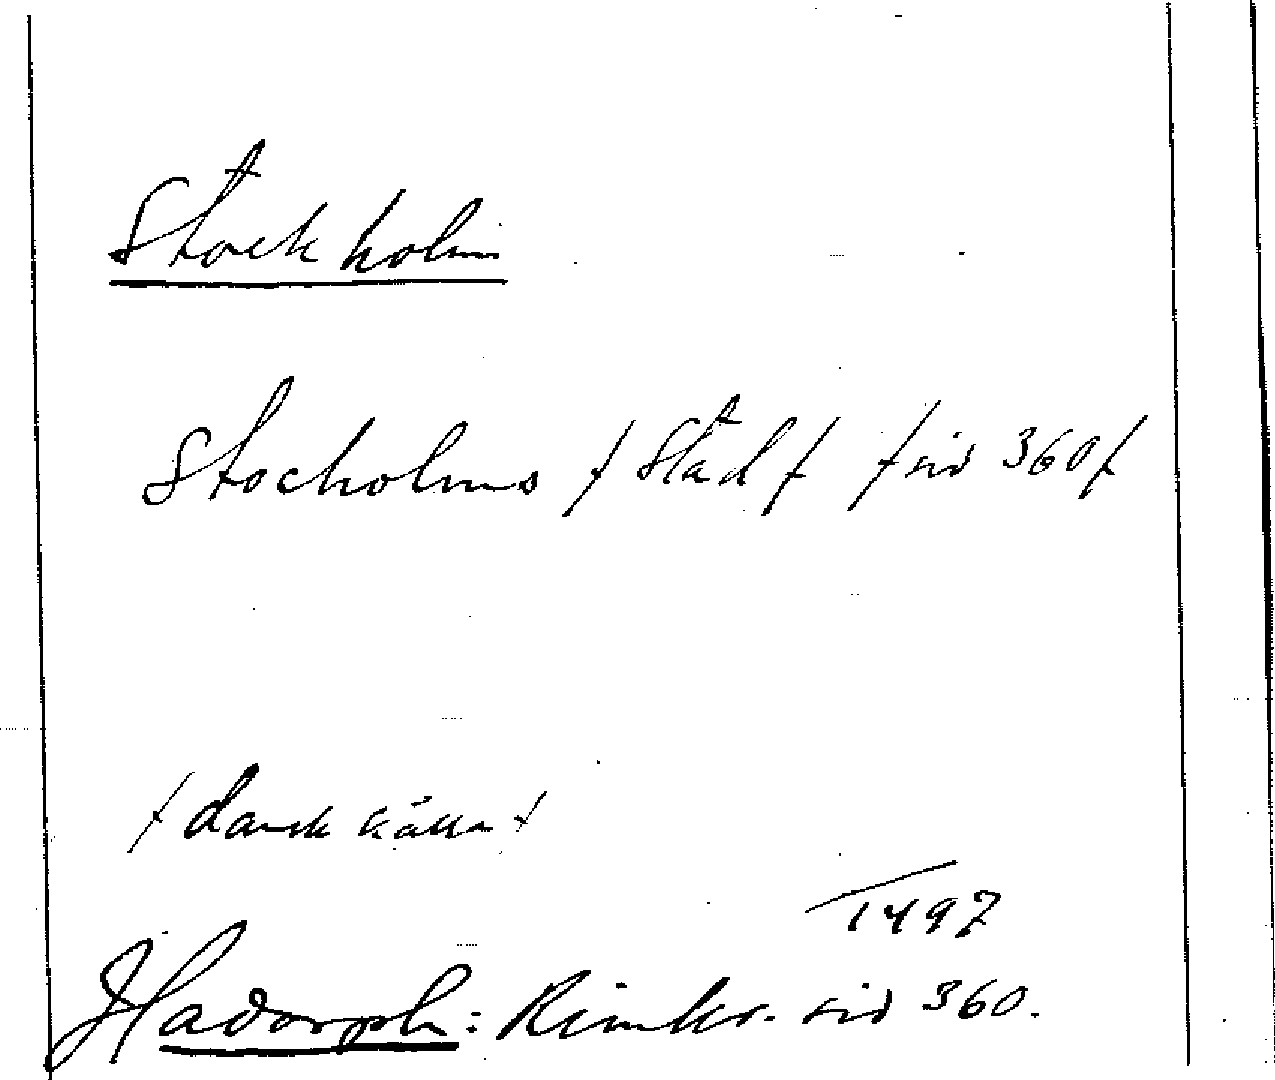 Stockholm
Stocholms / Stad / / sid 360 /
/ dansk källa /
1497
Hadorph: Rimkr. sid 360.